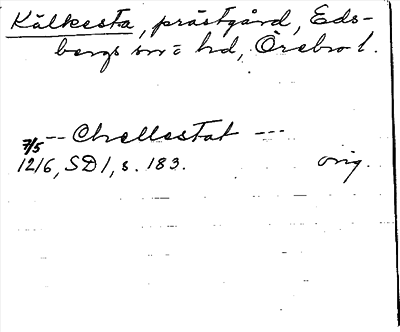 Kälkesta, prästgård, Eds-
bergs sn o hd, Örebro l.
7/5 -- Chellestat ---
1216, SD 1, s. 183. orig.